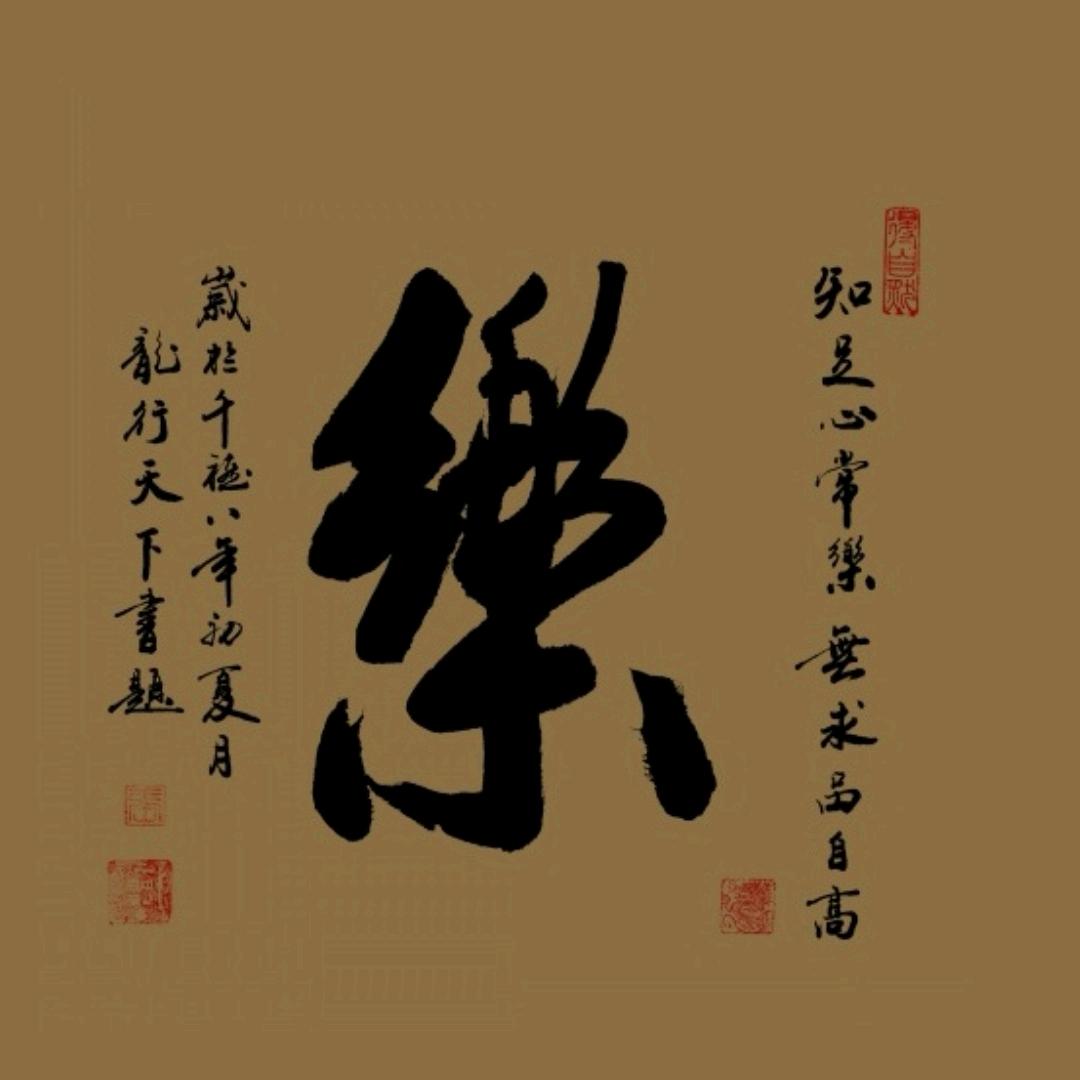 知足心常樂無求品自高
樂
歲於千禧八年初夏月
龍行天下書題